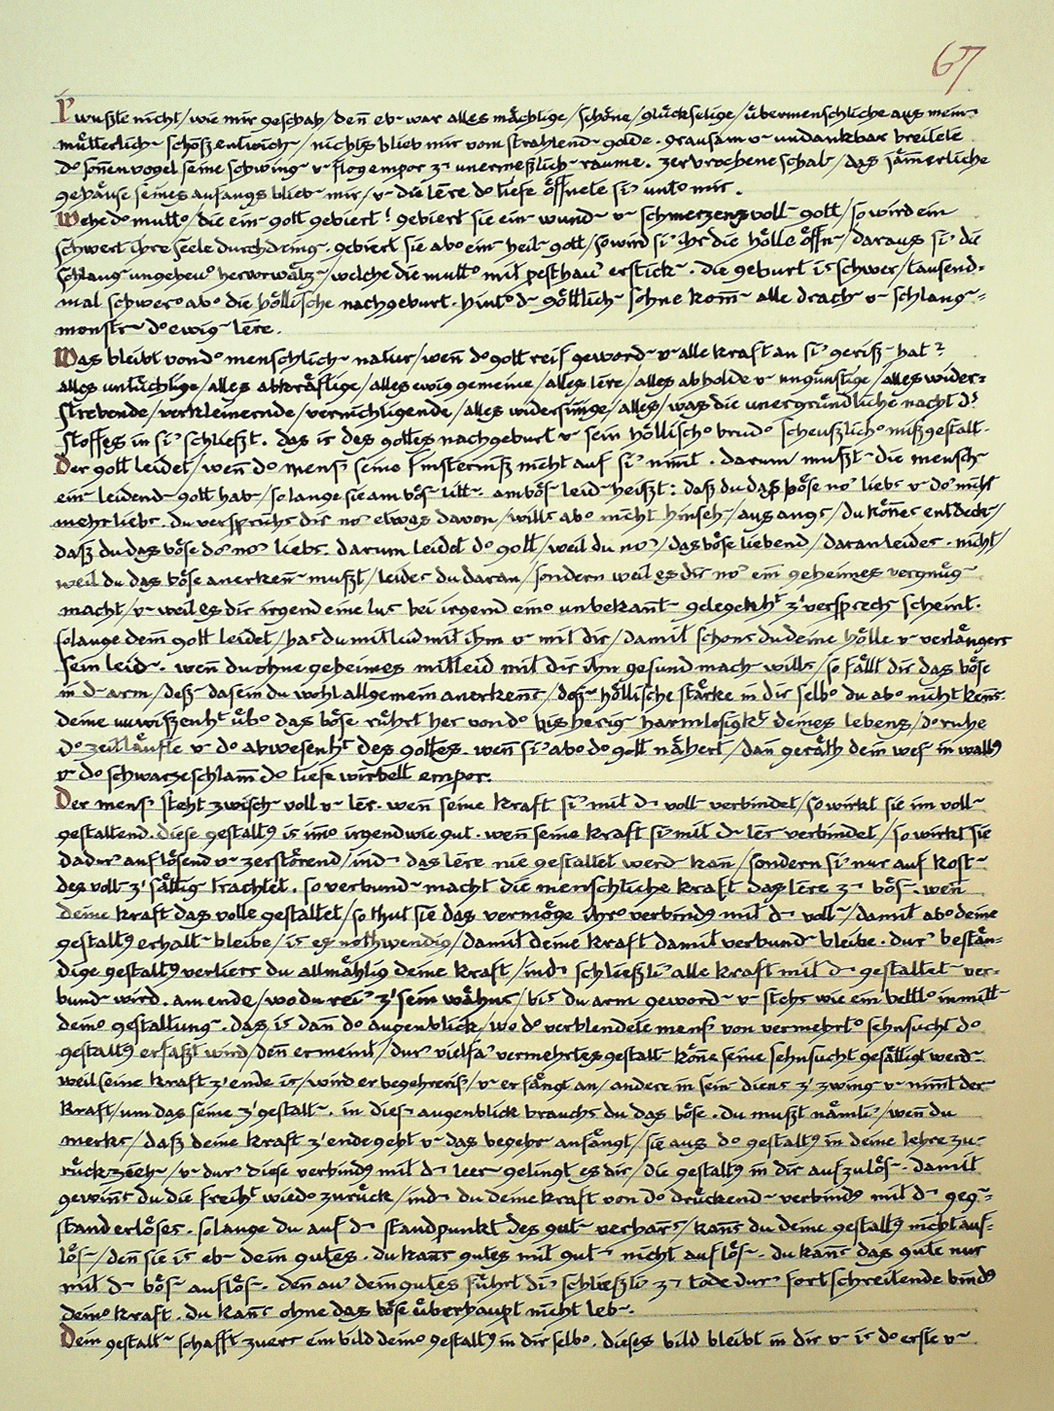 67
I' wußte nicht / wie mir geschah / deñ eb~ war alles mächtige / schöne / glückselige / übermenschliche aus mein~
mütterlich~ schoß entwich~ / nichts blieb mir vom strahlend~ golde. grausam u~ undankbar breitete
d° soñenvogel seine schwing~ u~ flog empor z~ unermeßlich~ raume. zerbrochene schal~ / das jäm̃erliche
gehäuse seines anfangs blieb~ mir / u~ die lẽre d° tiefe öffnete si' unt° mir.
Wehe d° mutt° / die ein~ gott gebiert! gebiert sie ein~ wund~ u~ schmerzensvoll~ gott / so wird ein
schwert ihre seele durchdring~. gebiert sie ab° ein~ heil~ gott / so wird si' ihr die hölle öffn~ / daraus si' die
schlang~ ungeheu° hervorwälz~ / welche die mutt° mit pesthau' erstick~. die geburt is schwer / tausend-
mal schwer° ab° die höllische nachgeburt. hint° d~ göttlich~ sohne kom̃~ alle drach~ u~ schlang~-
monstr~ d° ewig~ lẽre.
Was bleibt von d° menschlich~ natur / weñ d° gott reif geword~ u~ alle kraft an si' geriß~ hat?
alles untüchtige / alles abkräftige / alles ewig gemeine / alles lẽre / alles abholde u~ ungünstige / alles wider-
strebende / verkleinernde / vernichtigende / alles widersiñige / alles / was die unergründliche nacht d'
stoffes in si' schließt. das is des gottes nachgeburt u~ sein höllisch° brud° scheußlich° mißgestalt~.
Der gott leidet / weñ d° mens' seine finsterniß nicht auf si' nim̃t. darum mußt~ die mensch~
ein~ leidend~ gott hab~ / so lange sie am bös~ litt~. am bös~ leid~ heißt: daß du das böse no' liebs u~ do' nicht
mehr liebs. du versprichs dir no' etwas davon / wills ab° nicht hinseh~ / aus angs / du köñtes entdeck~ /
daß du das böse do' no' liebs. darum leidet d° gott / weil du no' / das böse liebend / daran leides. nicht /
weil du das böse anerkeñ~ mußt / leides du daran / sondern weil es dir no' ein geheimes vergnüg~
macht / u~ weil es dir irgend eine lus bei irgend ein° unbekañt~ gelegenht z' versprech~ scheint.
solange dein gott leidet / has du mitleid mit ihm u~ mit dir / damit schons du deine hölle u~ verlängers
sein leid~. weñ du ohne geheimes mitleid mit dir ihn gesund mach~ wills / so fällt dir das böse
in d~ arm / deß~ dasein du wohl allgemein anerkeñs / deß~ höllische stärke in dir selb° du ab° nicht keñs.
deine unwißenht üb° das böse rührt her von d° bisherig~ harmlosigkt deines lebens / d° ruhe
d° zeitläufte u~ d° abwesenht des gottes. weñ si' ab° d° gott nähert / dañ geräth dein wes~ in wallg
u~ d° schwarze schlam̃ d° tiefe wirbelt empor.
Der mens' steht zwisch~ voll u~ lẽr. weñ seine kraft si' mit d~ voll~ verbindet / so wirkt sie im voll~
gestaltend. diese gestaltg is im̃° irgendwie gut. weñ seine kraft si' mit d~ lẽr~ verbindet / so wirkt sie
dadur' auflösend u~ zerstörend / ind~ das lẽre nie gestaltet werd~ kañ / sondern si' nur auf kost~
des voll~ z' sättig~ trachtet. so verbund~ macht die menschliche kraft das lẽre z~ bös~. weñ
deine kraft das volle gestaltet / so thut sie das vermöge ihr° verbindg mit d~ voll~ / damit ab° deine
gestaltg erhalt~ bleibe / is es nothwendig / damit deine kraft damit verbund~ bleibe. dur' bestän-
dige gestaltg verliers du allmählig deine kraft / ind~ schließli' alle kraft mit d~ gestaltet~ ver-
bund~ wird. am ende / wo du rei' z' sein wähns / bis du arm geword~ u~ stehs wie ein bettl° inmitt~
dein° gestaltung~. das is dañ d° augenblick / wo d° verblendete mens' von vermehrt° sehnsucht d°
gestaltg erfaßt wird / deñ er meint / dur' vielfa' vermehrtes gestalt~ köñe seine sehnsucht gesättigt werd~.
weil seine kraft z' ende is / wird er begehreris' / u~ er fängt an / andere in sein~ diens z' zwing~ u~ nim̃t der~
kraft / um das seine z' gestalt~. in dies~ augenblick brauchs du das böse. du mußt nämli' / weñ du
merks / daß deine kraft z' ende geht u~ das begehr~ anfängt / sie aus d° gestaltg in deine lehre zu-
rückzieh~ / u~ dur' diese verbindg mit d~ leer~ gelingt es dir / die gestaltg in dir aufzulös~. damit
gewiñs du die freiht wied° zurück / ind~ du deine kraft von d° drückend~ verbindg mit d~ geg~-
stand erlöses. solange du auf d~ standpunkt des gut~ verhars / kañs du deine gestaltg nicht auf-
lös~ / deñ sie is eb~ dein gutes. du kañs gutes mit gut~ nicht auflös~. du kañs das gute nur
mit d~ bös~ auflös~. deñ au' dein gutes führt di' schließli' z~ tode dur' fortschreitende bindg
dein° kraft. du kañs ohne das böse überhaupt nicht leb~.
Dein gestalt~ schafft zuers ein bild dein° gestaltg in dir selb°. dieses bild bleibt in dir u~ is d° erste u~